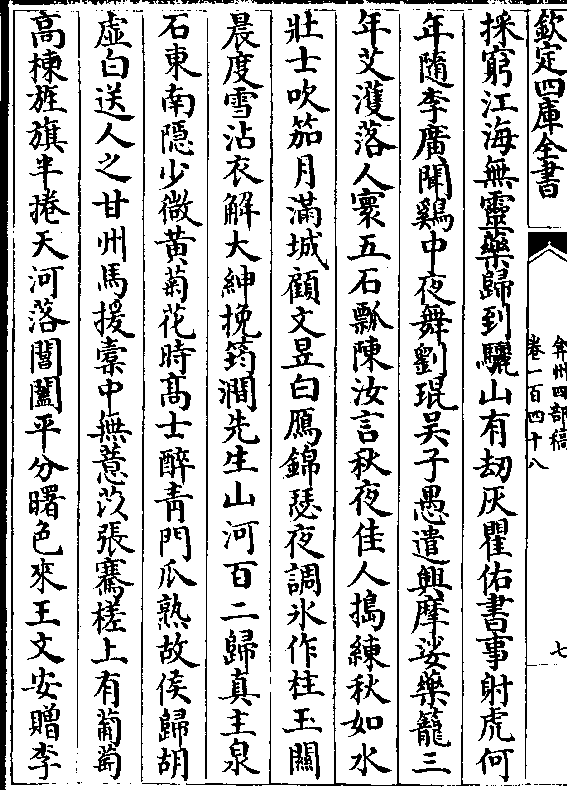 欽定四庫全書
弇州四部稿
卷一百四十八
七
採窮江海無靈藥歸到驪山有刼灰瞿佑書事射虎何
年隨李廣聞鷄中夜舞劉琨吴子愚遣興摩娑藥籠三
年艾濩落人寰五石瓢陳汝言秋夜佳人搗練秋如水
壯士吹笳月滿城顧文昱白鴈錦瑟夜調氷作柱玉關
晨度雪沾衣解大紳挽筠澗先生山河百二歸真主泉
石東南隠少微黄菊花時髙士醉青門瓜熟故侯歸胡
虚白送人之甘州馬援槖中無薏苡張騫槎上有葡萄
高棅旌旗半捲天河落閶闔平分曙色來王文安贈李